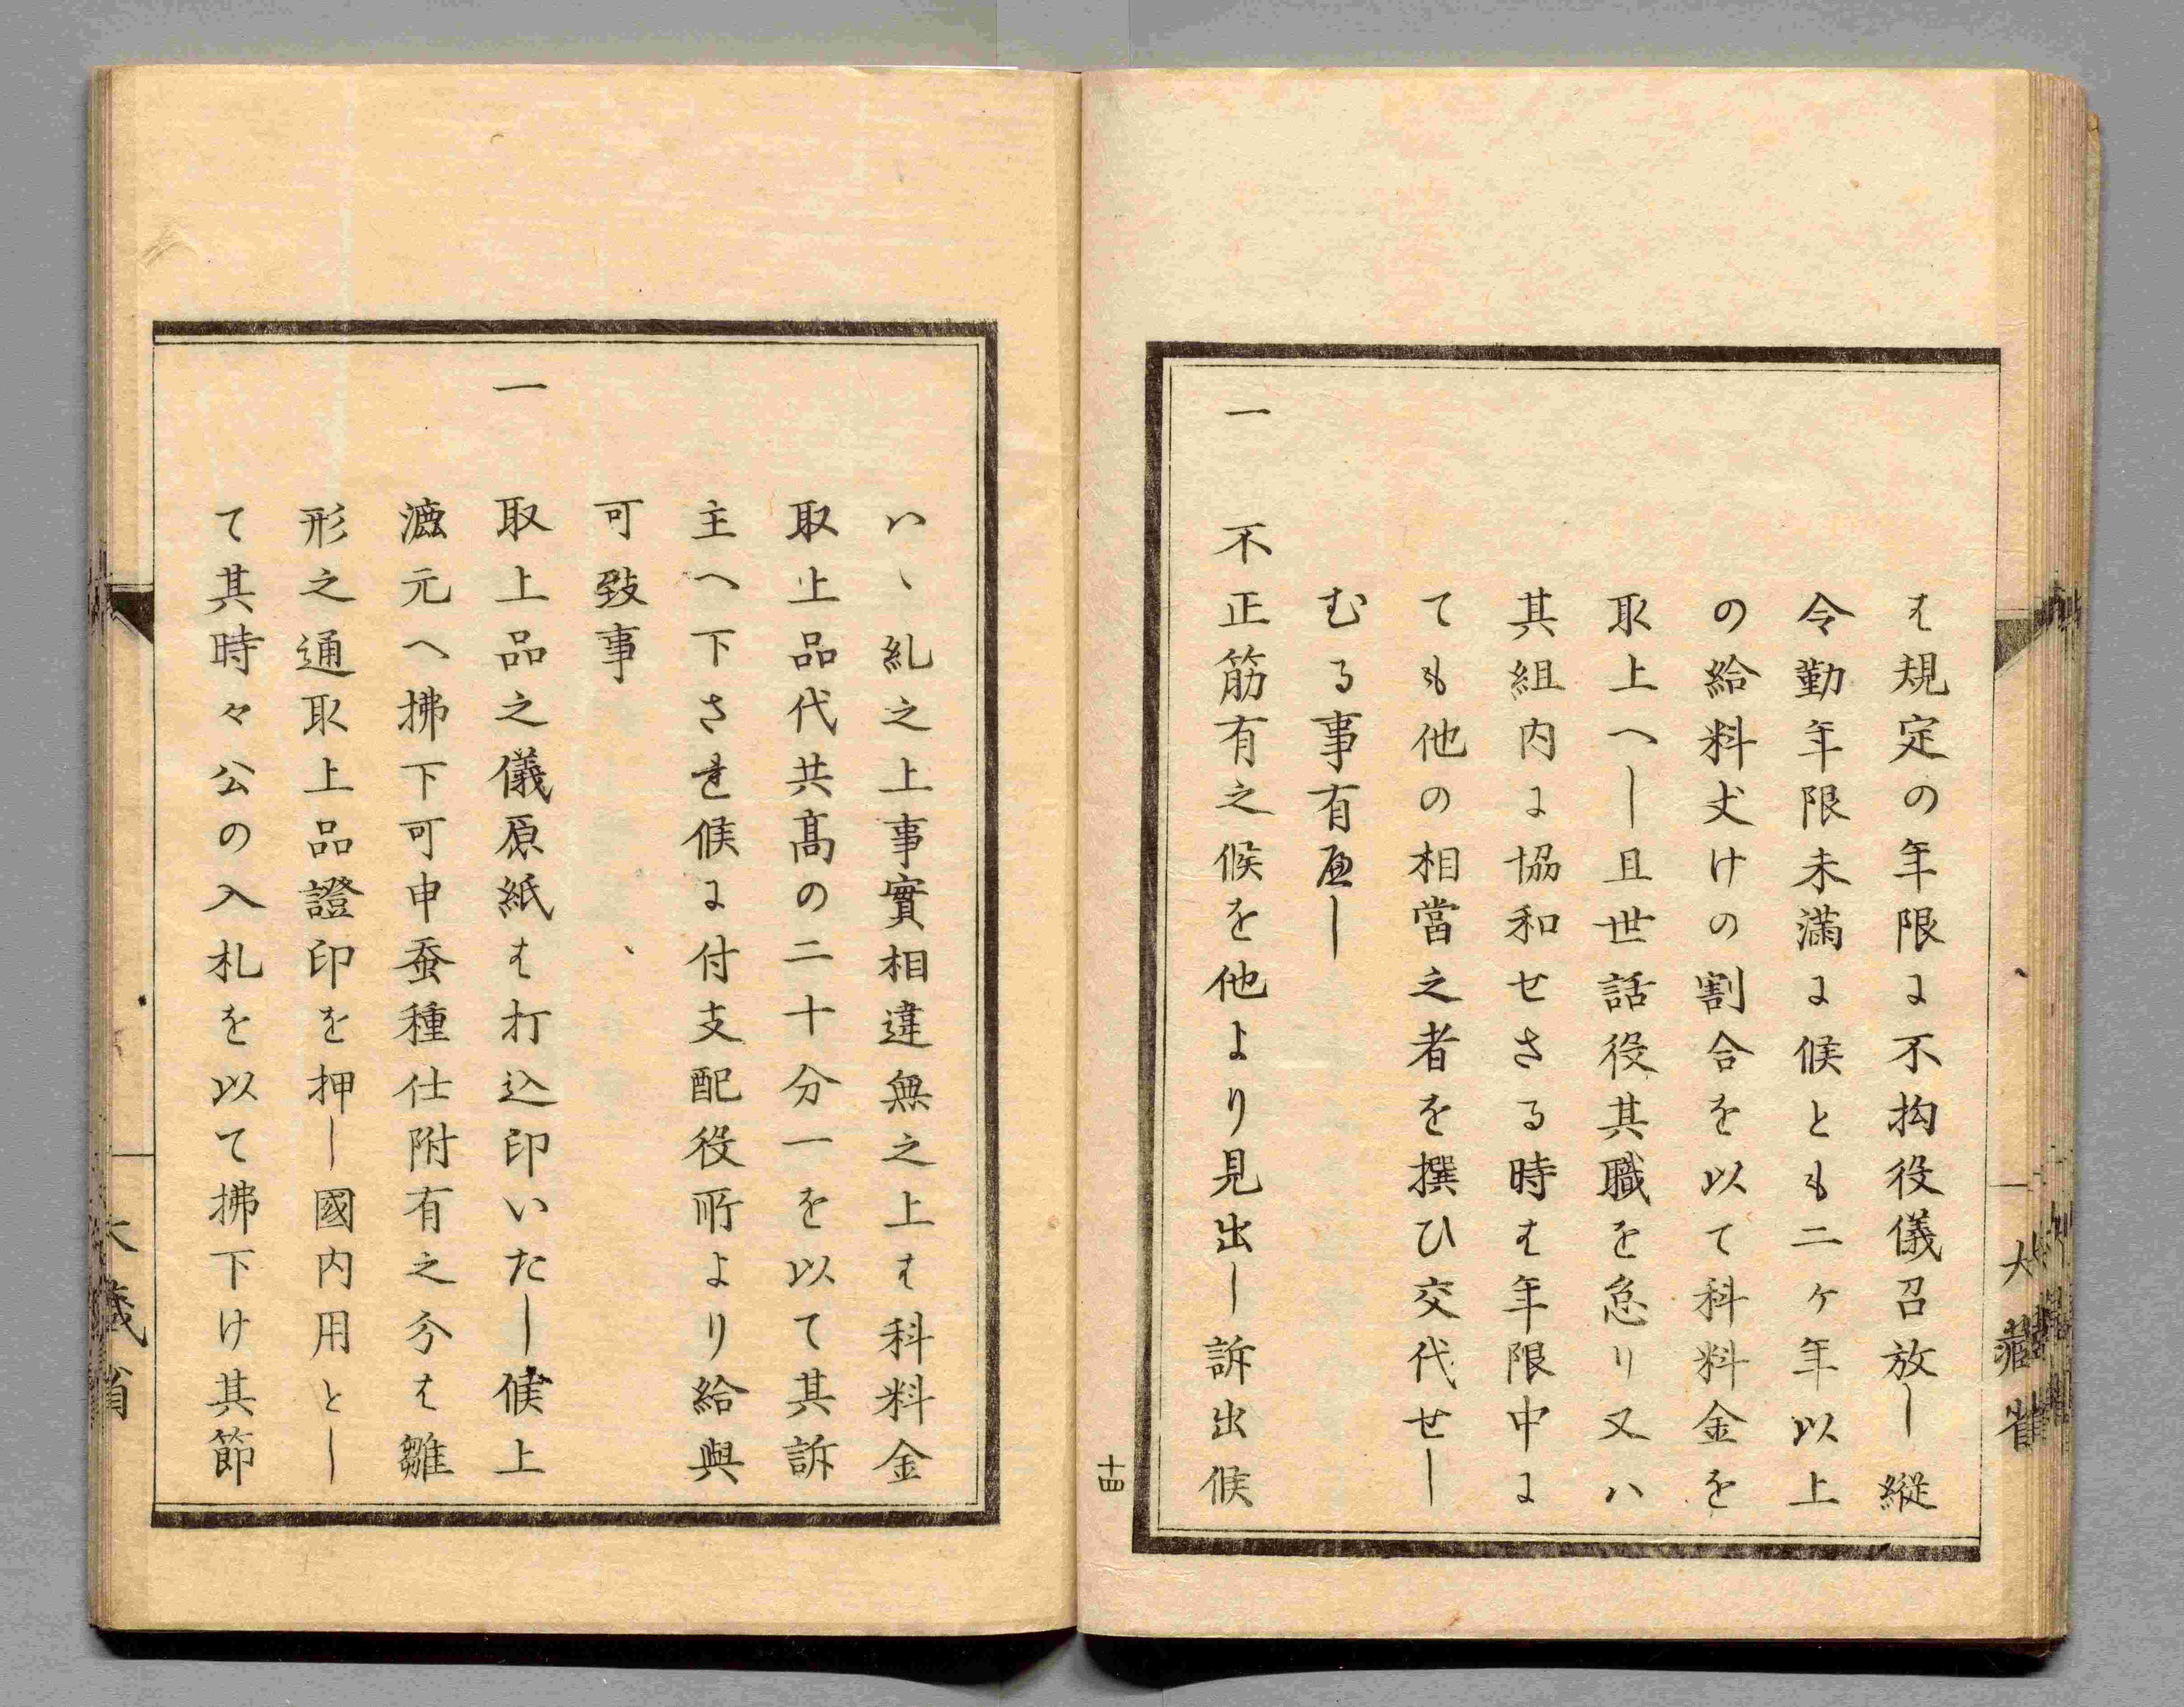 は規定の年限に不拘役儀召放し縦
令勤年限未満に候とも二ヶ年以上
の給料丈けの割合を以て科料金を
取上へし且世話役其職を怠り又ハ
其組内に協和せさる時は年限中に
ても他の相當之者を撰ひ交代せし
むる事有へし
一 不正筋有之候を他より見出し訴出候
十四
大藏省
ハヽ糺之上事實相違無之上は科料金
取上品代共髙の二十分一を以て其訴
主へ下され候に付支配役所より給與
可致事
一 取上品之儀原紙は打込印いたし候上
漉元へ拂下可申蚕種仕附有之分は雛
形之通取上品證印を押し國内用とし
て其時々公の入札を以て拂下け其節
大藏省